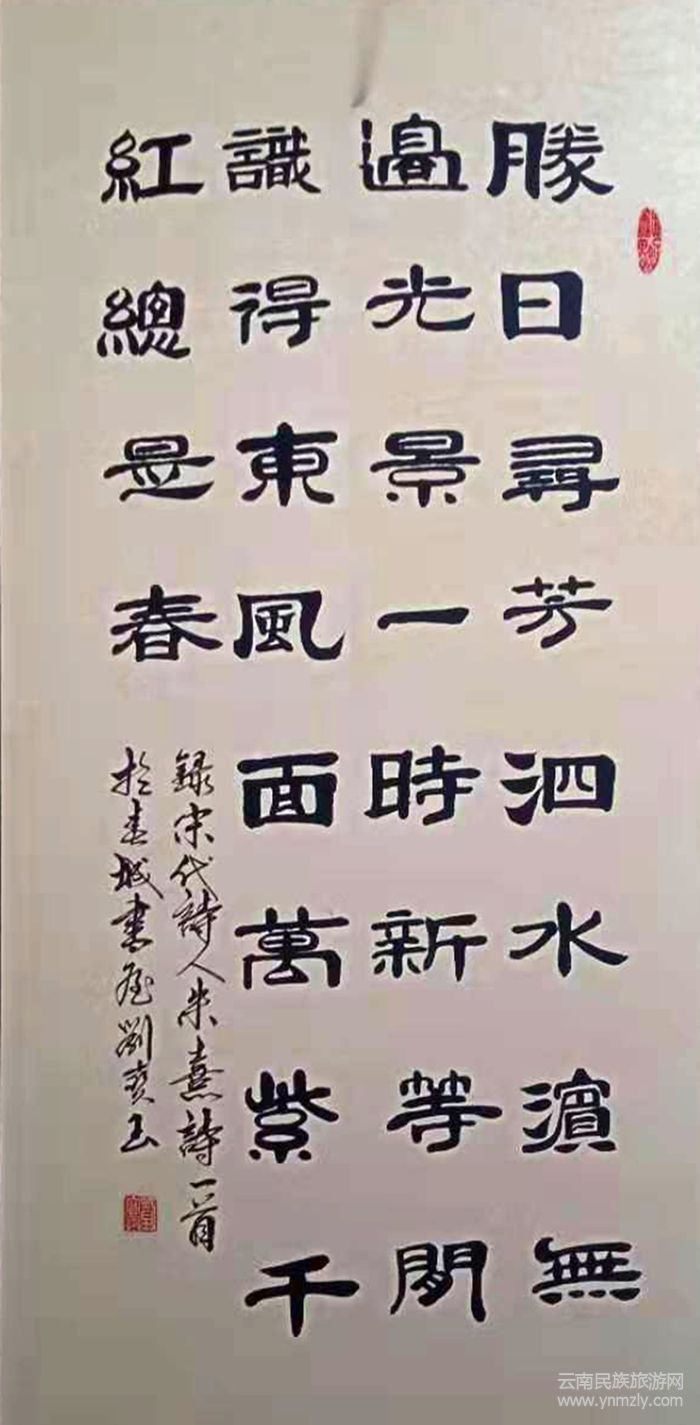 勝日尋芳泗水濵無
邉光景一時新等閒
識得東風面萬紫千
紅總是春
録宋代詩人朱熹詩一首
於春城書屋劉寶玉
云南民族旅游网
www.ynmzly.com